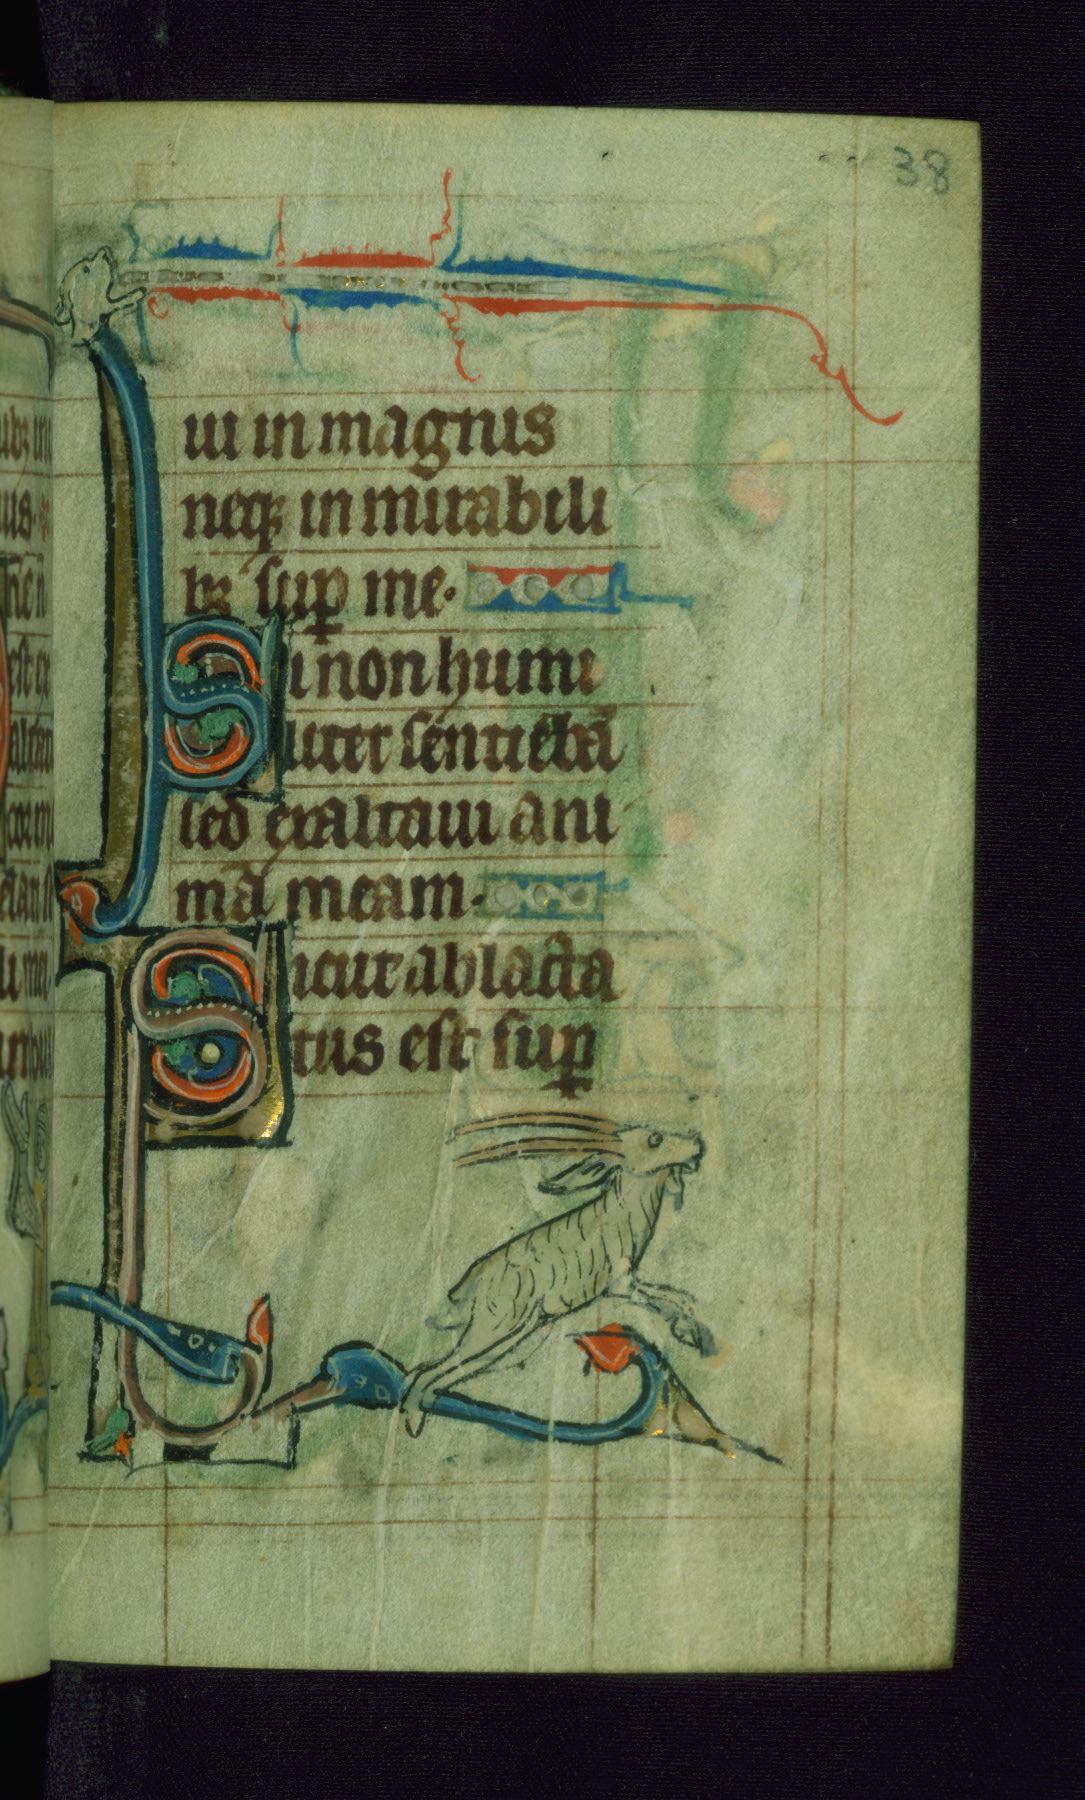 38
ui in magnis
neqꝫ in mirabili
bꝫ suꝑ me.
Si non humi
liter sentiebā
sed exaltaui ani
mā meam.
Sicut ablacta
tus est suꝑ